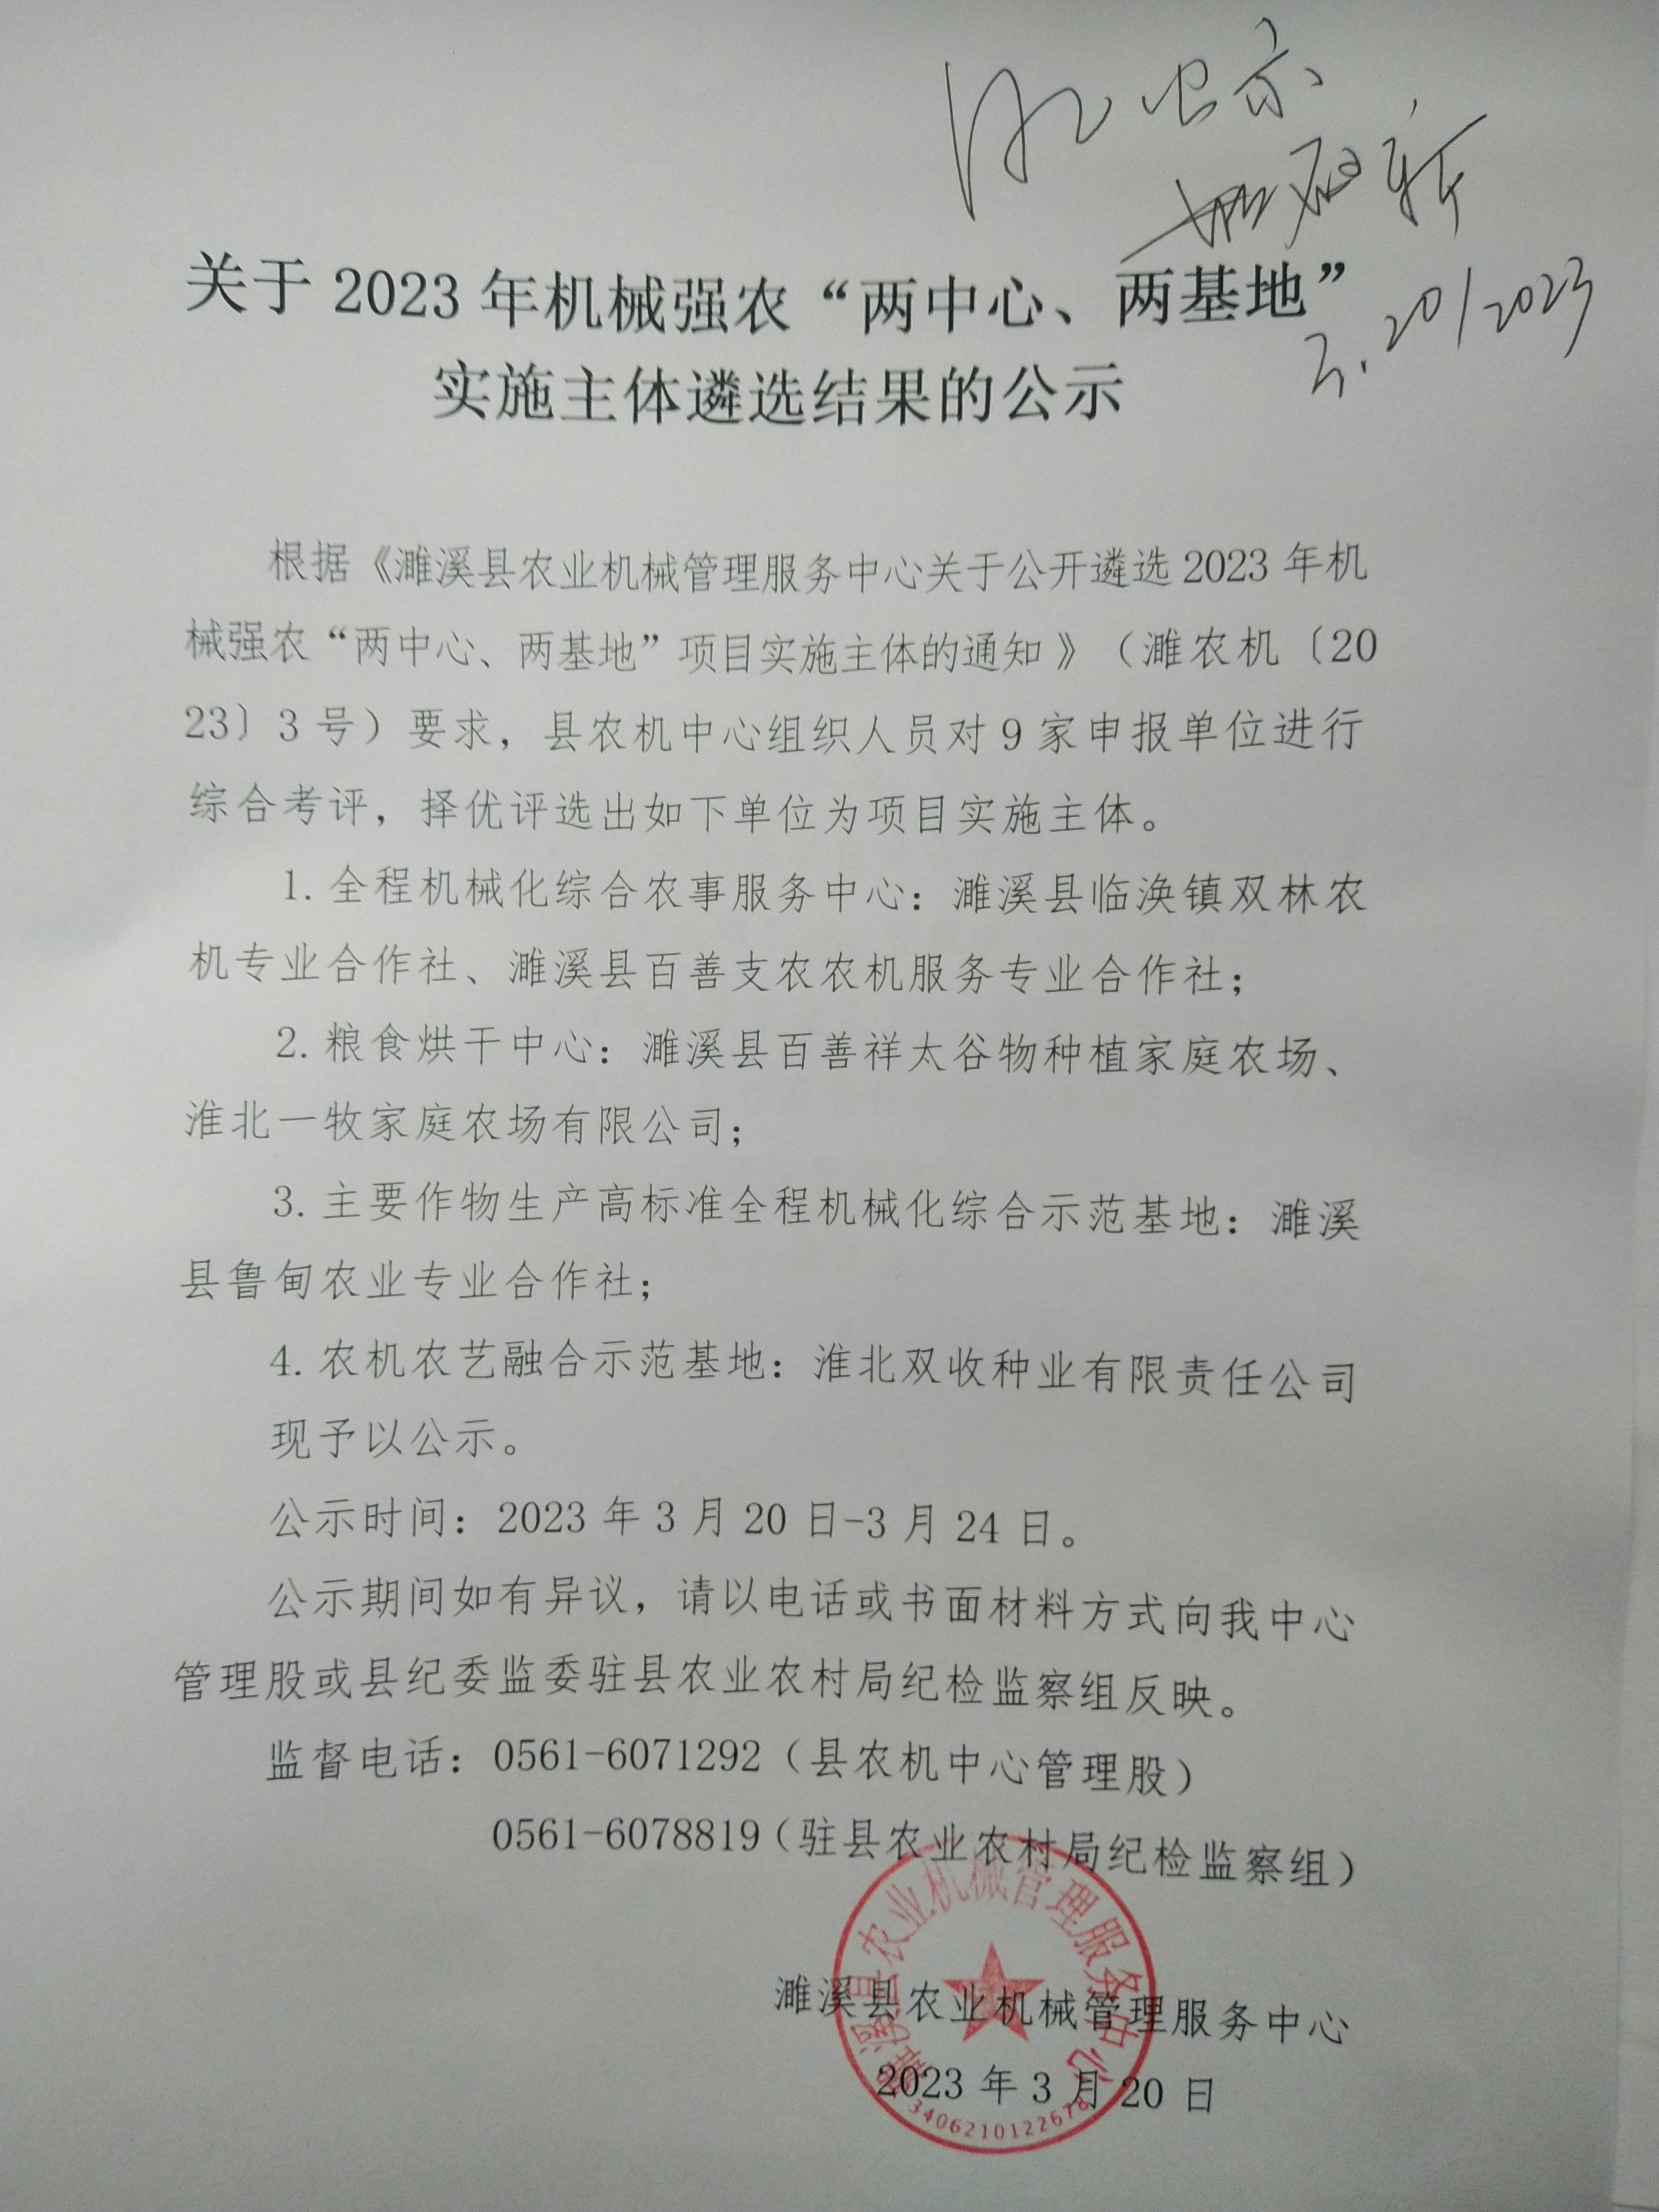 公示
3.20/2023
关于 2023 年机械强农“两中心、两基地”
实施主体遴选结果的公示
根据《濉溪县农业机械管理服务中心关于公开遴选 2023 年机
械强农“两中心、两基地”项目实施主体的通知》（濉农机〔20
23〕3 号）要求，县农机中心组织人员对 9 家申报单位进行
综合考评，择优评选出如下单位为项目实施主体。
1. 全程机械化综合农事服务中心：濉溪县临涣镇双林农
机专业合作社、濉溪县百善支农农机服务专业合作社；
2. 粮食烘干中心：濉溪县百善祥太谷物种植家庭农场、
淮北一牧家庭农场有限公司；
3. 主要作物生产高标准全程机械化综合示范基地：濉溪
县鲁甸农业专业合作社；
4. 农机农艺融合示范基地：淮北双收种业有限责任公司
现予以公示。
公示时间：2023 年 3 月 20 日-3 月 24 日。
公示期间如有异议，请以电话或书面材料方式向我中心
管理股或县纪委监委驻县农业农村局纪检监察组反映。
监督电话：0561-6071292（县农机中心管理股）
0561-6078819（驻县农业农村局纪检监察组）
濉溪县农业机械管理服务中心
2023 年 3 月 20 日
濉溪县农业机械管理服务中心
3406210122678